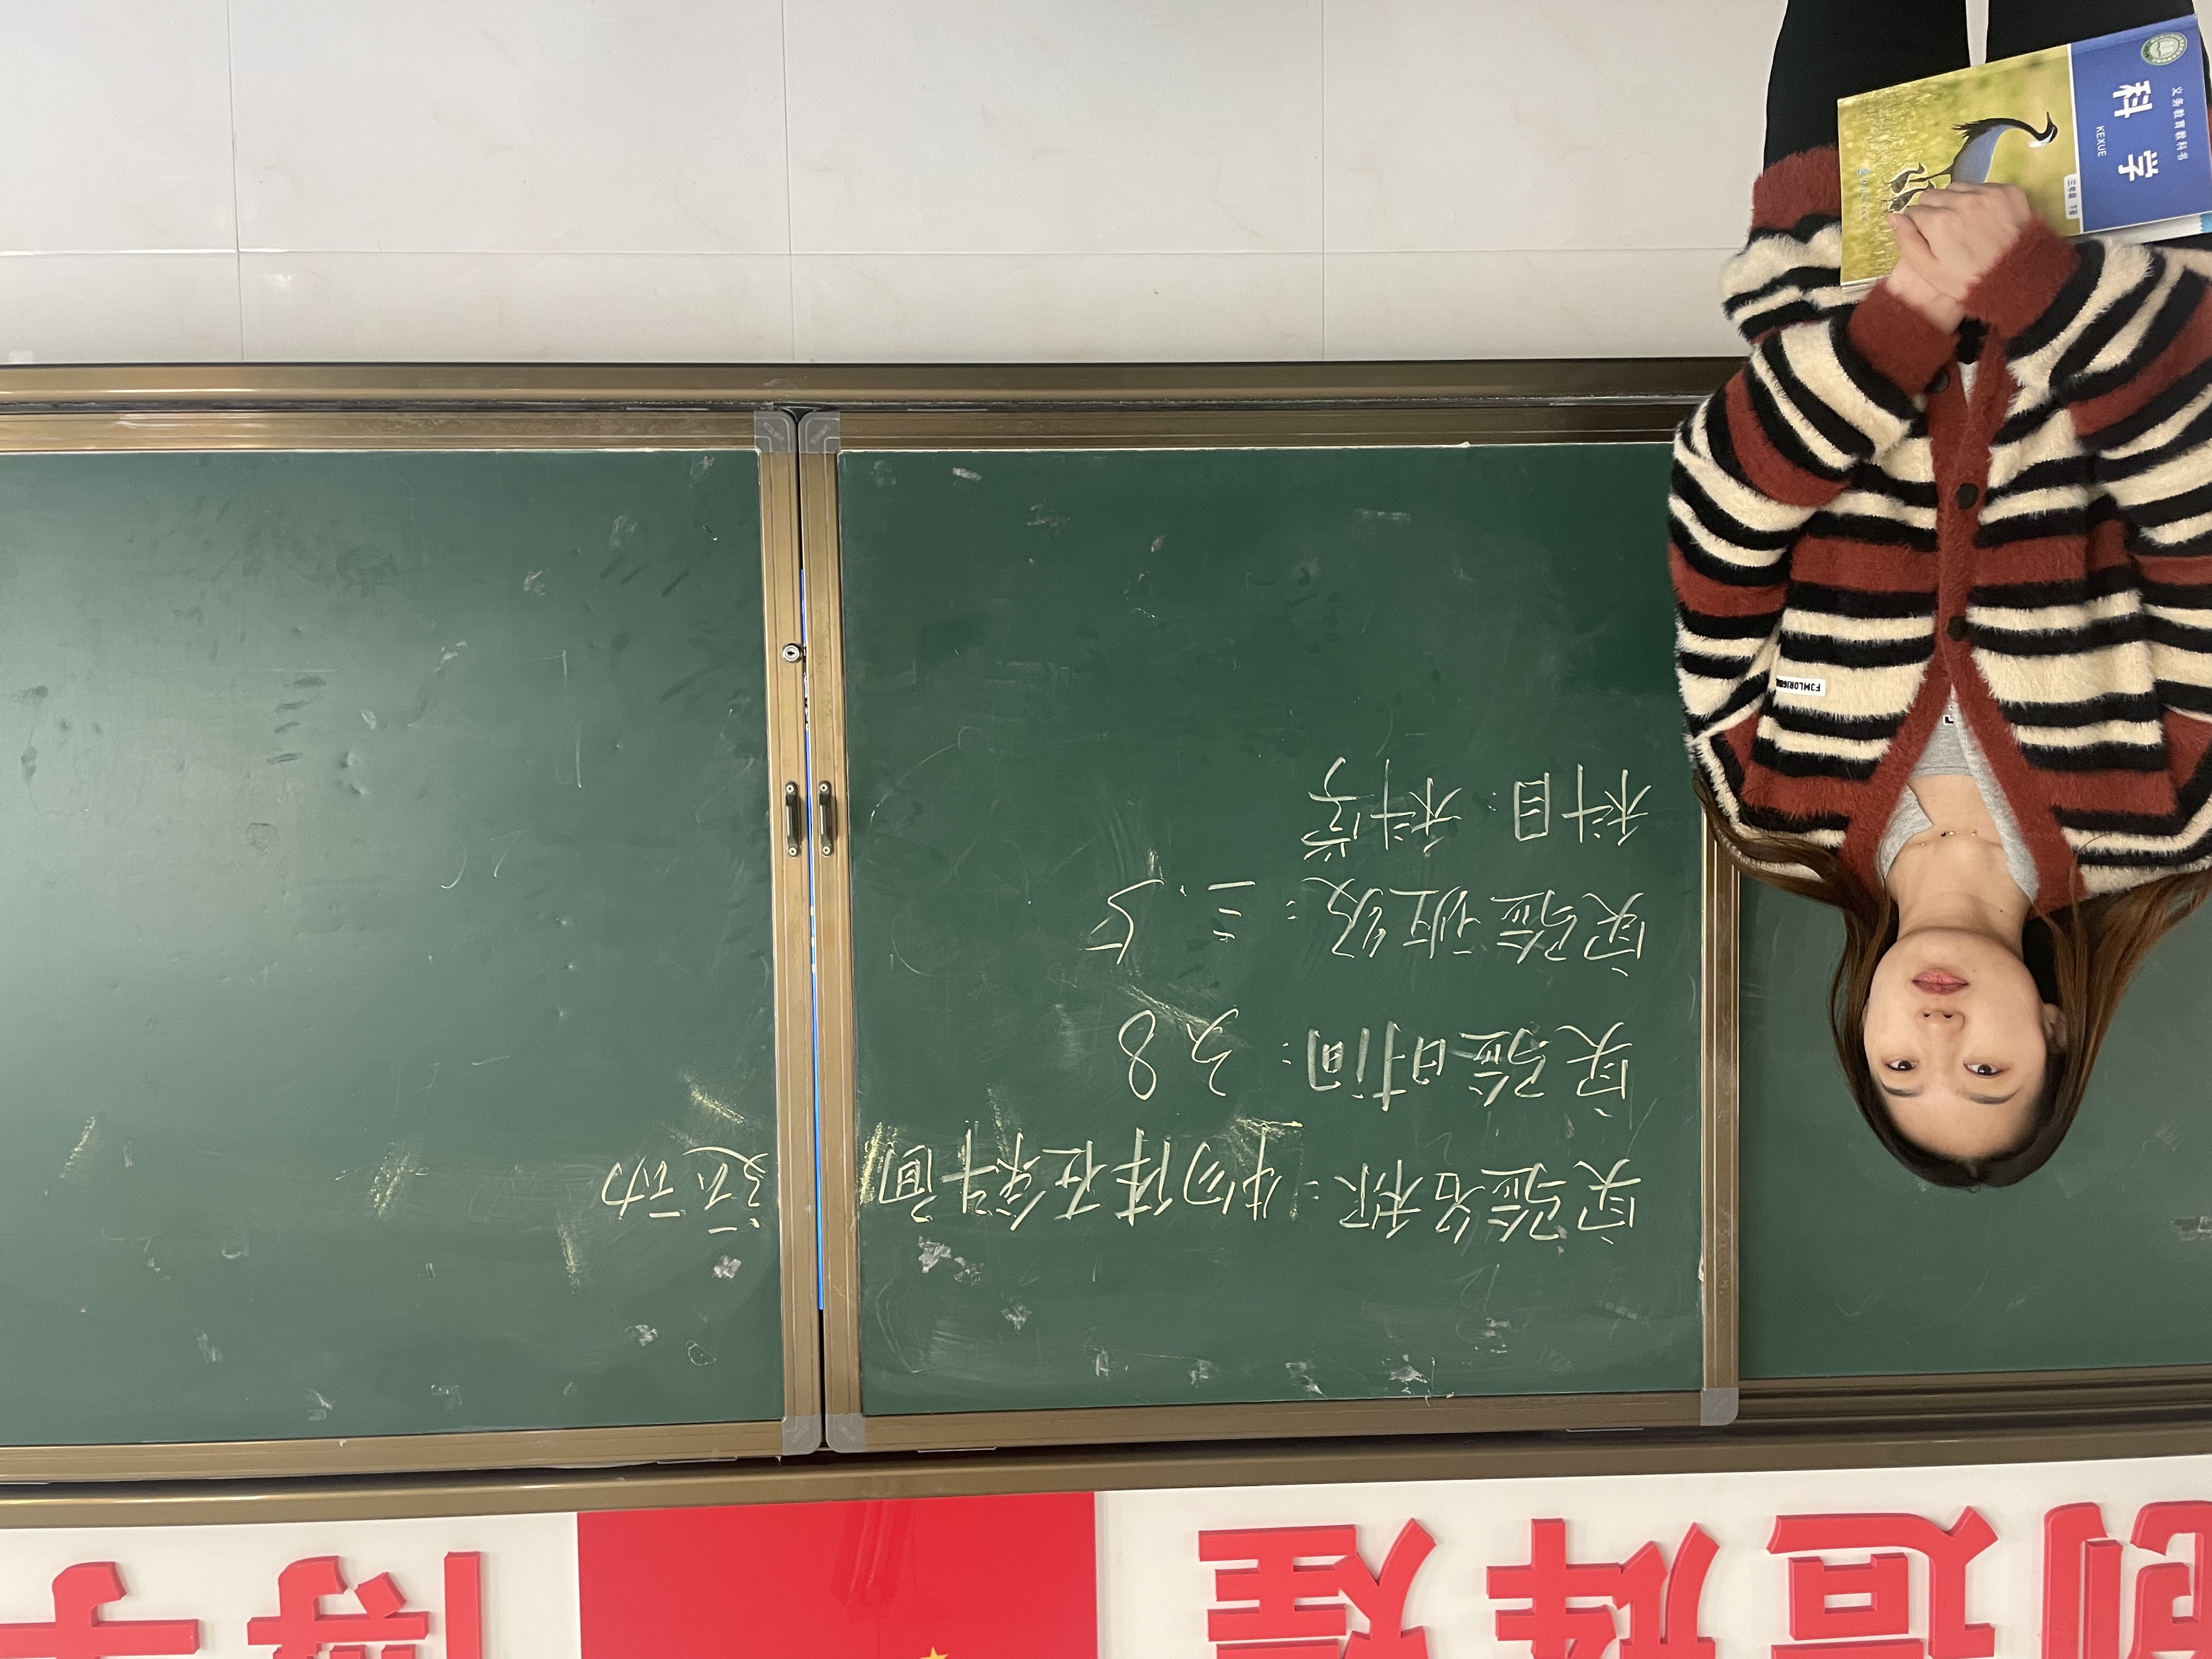 创造辉煌
博
实验名称:物体在斜面
运动
实验时间:3.8
实验班级:三.5
科目:科学
F3MLORIG
义务教育教科书
科学
KEXUE
三年级 下册